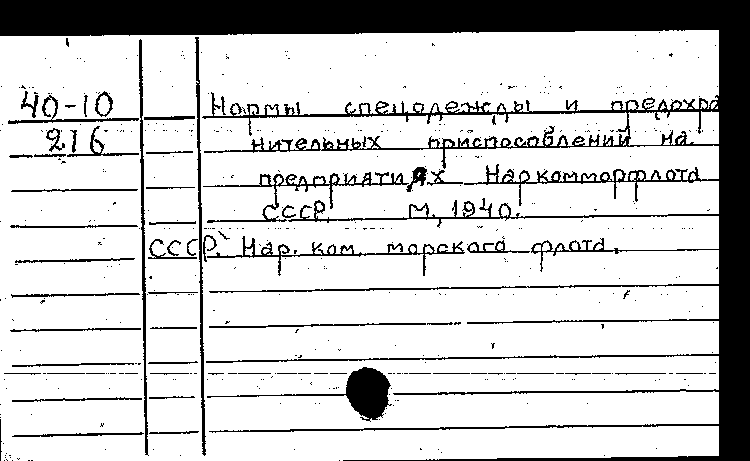 40-10 Нормы спецодежды и предохра
216 нительных приспособлений на
предприятиях Наркомморфлота
СССР. М., 1940.
СССР. Нар. ком. морского флота.